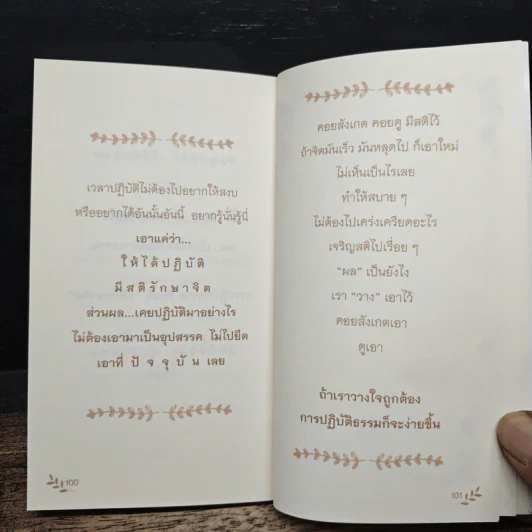 เวลาปฏิบัติไม่ต้องไปอยากให้สงบ
หรืออยากได้อันนั้นอันนี้ อยากรู้นั่นรู้นี่
เอาแค่ว่า...
ให้ได้ปฏิบัติ
มีสติรักษาจิต
ส่วนผล...เคยปฏิบัติมาอย่างไร
ไม่ต้องเอามาเป็นอุปสรรค ไม่ไปยึด
เอาที่ ปัจจุบัน เลย
100
คอยสังเกต คอยดู มีสติไว้
ถ้าจิตมันเร็ว มันหลุดไป ก็เอาใหม่
ไม่เห็นเป็นไรเลย
ทำให้สบาย ๆ
ไม่ต้องไปเคร่งเครียดอะไร
เจริญสติไปเรื่อย ๆ
“ผล” เป็นยังไง
เรา “วาง” เอาไว้
คอยสังเกตเอา
ดูเอา
ถ้าเราวางใจถูกต้อง
การปฏิบัติธรรมก็จะง่ายขึ้น
101